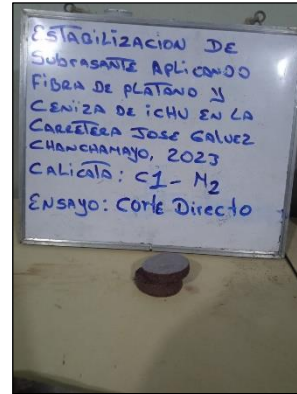 ESTABILIZACION DE
SUBRASANTE APLICANDO
FIBRA DE PLÁTANO Y
CENIZA DE ICHU EN LA
CARRETERA JOSE GALVEZ
CHANCHAMAYO, 2023
CALICATA: C1 - M2
ENSAYO: CORTE DIRECTO